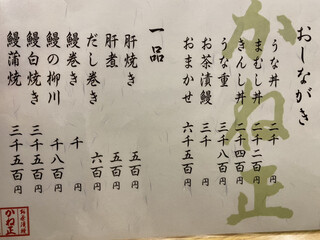 おしながき
うな丼 二千円
まむし丼 二千二百円
きんし丼 二千四百円
うな重 三千円
お茶漬鰻 三千円
おまかせ 六千五百円
一品
肝焼き 五百円
肝煮 五百円
だし巻き 六百円
鰻巻き 千円
鰻の柳川 千八百円
鰻白焼き 三千五百円
鰻蒲焼 三千五百円
かね正
お茶漬鰻
かね正